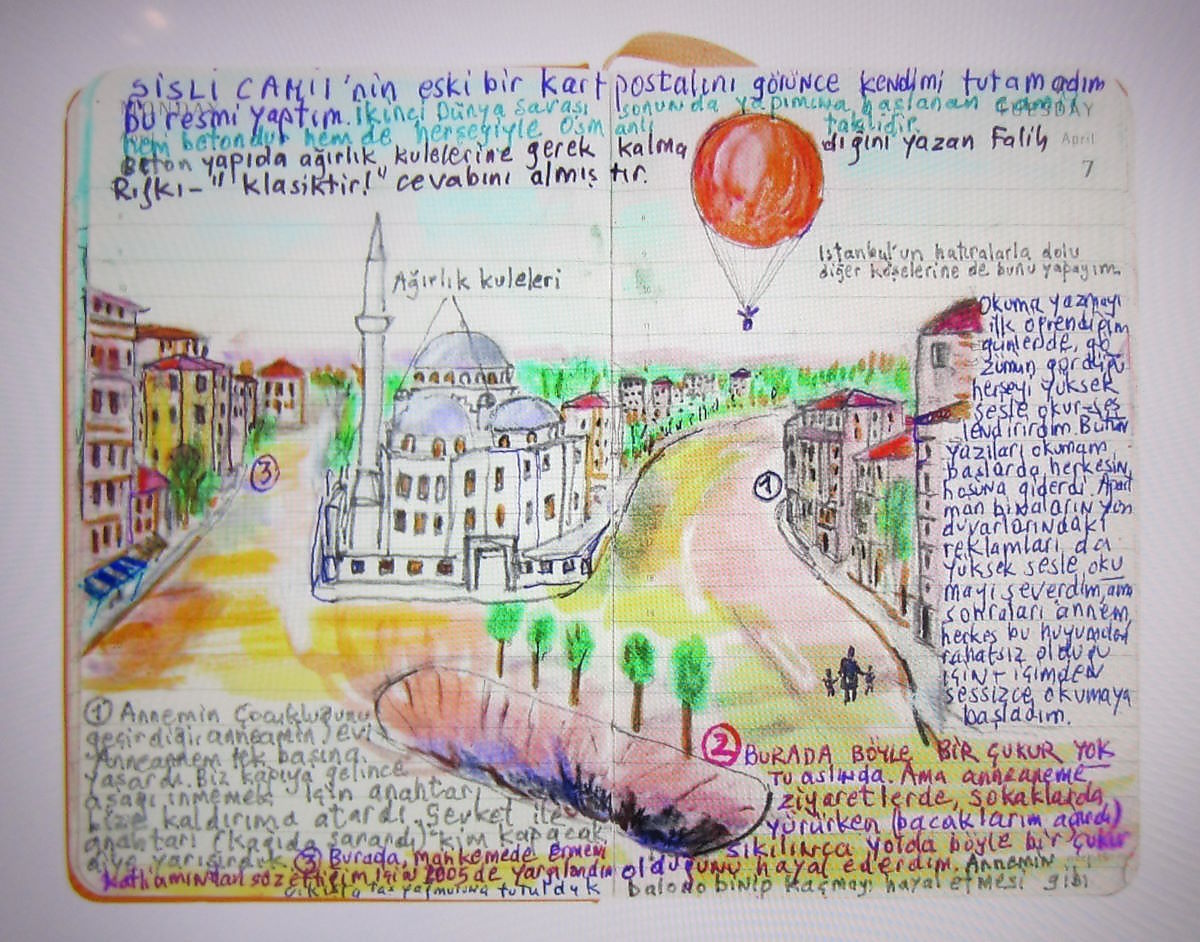 ŞİŞLİ CAMII'nin eski bir kart postalını görünce kendimi tutamadım
bu resmi yaptım. İkinci Dünya Savaşı sonunda yapımına başlanan camii
MONDAY
TUESDAY
hem betondur hem de herşeyiyle Osmanlı taklidir.
Beton yapıda ağırlık kulelerine gerek kalmadığını yazan Falih
April
7
Rıfkı- "klasiktir!" cevabını almıştır.
İstanbul'un hatıralarla dolu
diğer köşelerine de bunu yapayım.
Ağırlık kuleleri
Okuma yazmayı
ilk öğrendiğim
günlerde, gö
zümün gördüğü
herşeyi yüksek
sesle okur-ses
lendirirdim. Bütün
yazıları okumam
başlarda herkesin
hoşuna giderdi. Apart
man binaların yan
duvarlarındaki
reklamları da
yüksek sesle oku
mayı severdim, ama
sonraları annem,
herkes bu huyumdan
rahatsız olduğu
için + içimden
sessizce okumaya
başladım.
3
1
1 Annemin çocukluğunu
geçirdiği (anneannemin) evi
Anneannem tek başına
yaşardı. Biz kapıya gelince
aşağı inmemek için anahtarı
bize kaldırıma atardı. Şevket ile
anahtarı (kağıda sarardı) kim kapacak
diye yarışırdık.
3 Burada, mahkemede Ermeni
katliamından söz ettiğim için 2005 de yargılandım
çıkışta taş yağmuruna tutulduk
2 BURADA BÖYLE BİR ÇUKUR YOK
TU aslında. Ama anneanneme
ziyaretlerde, sokaklarda
yürürken (bacaklarım ağrırdı)
sıkılınca yolda böyle bir çukur
olduğunu hayal ederdim. Annemin
balona binip kaçmayı hayal etmesi gibi